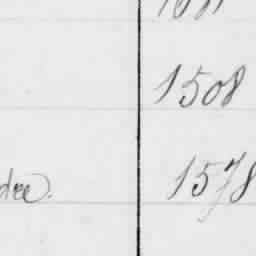 1508
dee. 1578